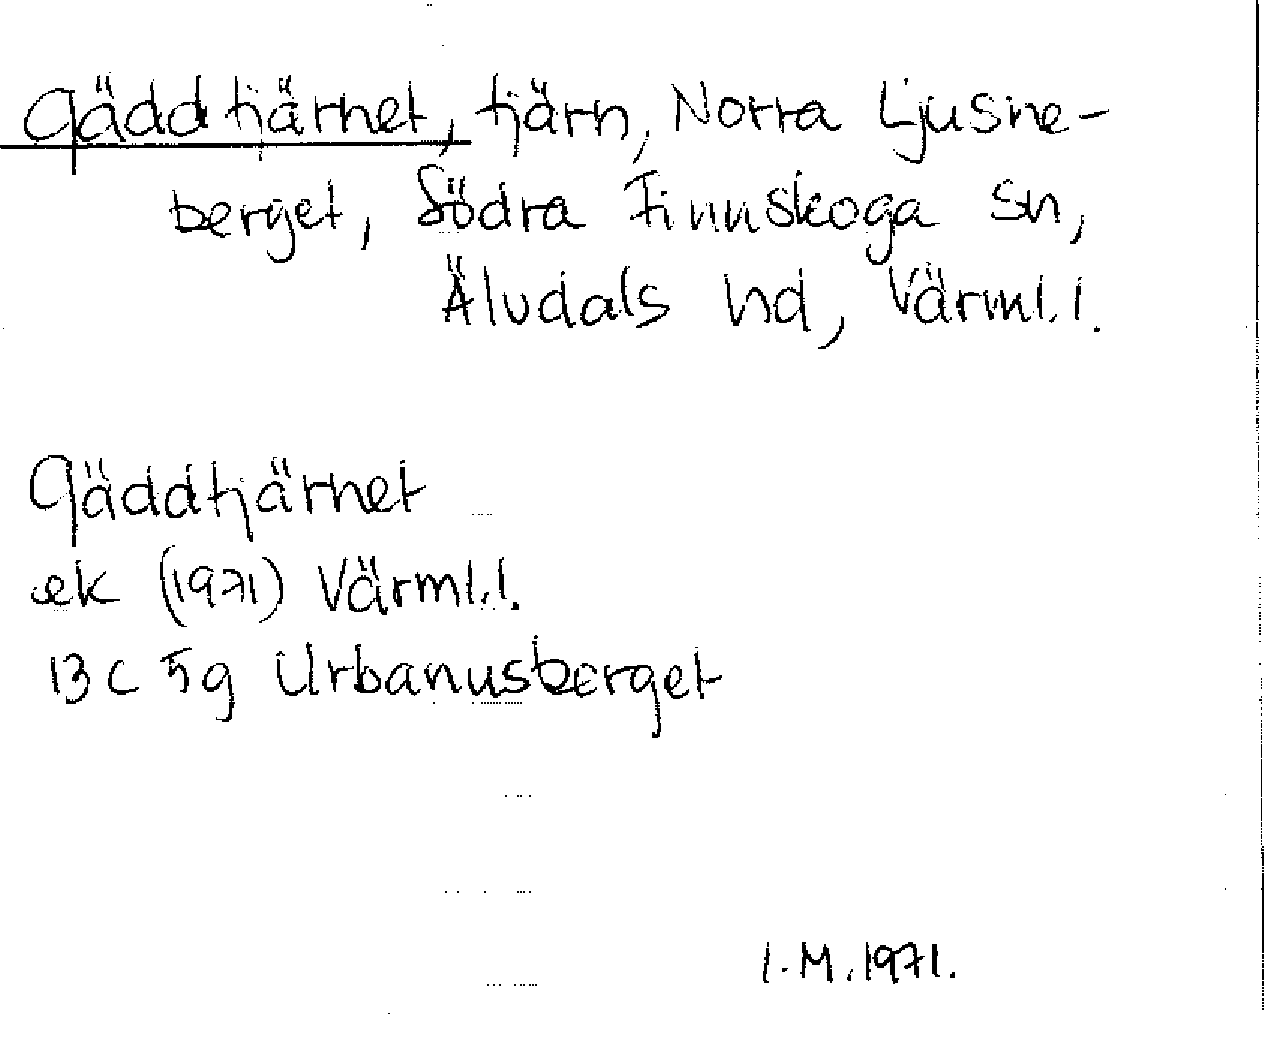 Gäddtjärnet, tjärn, Norra Ljusne-
berget, Södra Finnskoga sn,
Älvdals hd, Värml.l.
Gäddtjärnet
ek (1971) Värml.l.
13 C 5g Urbanusberget
I.M. 1971.